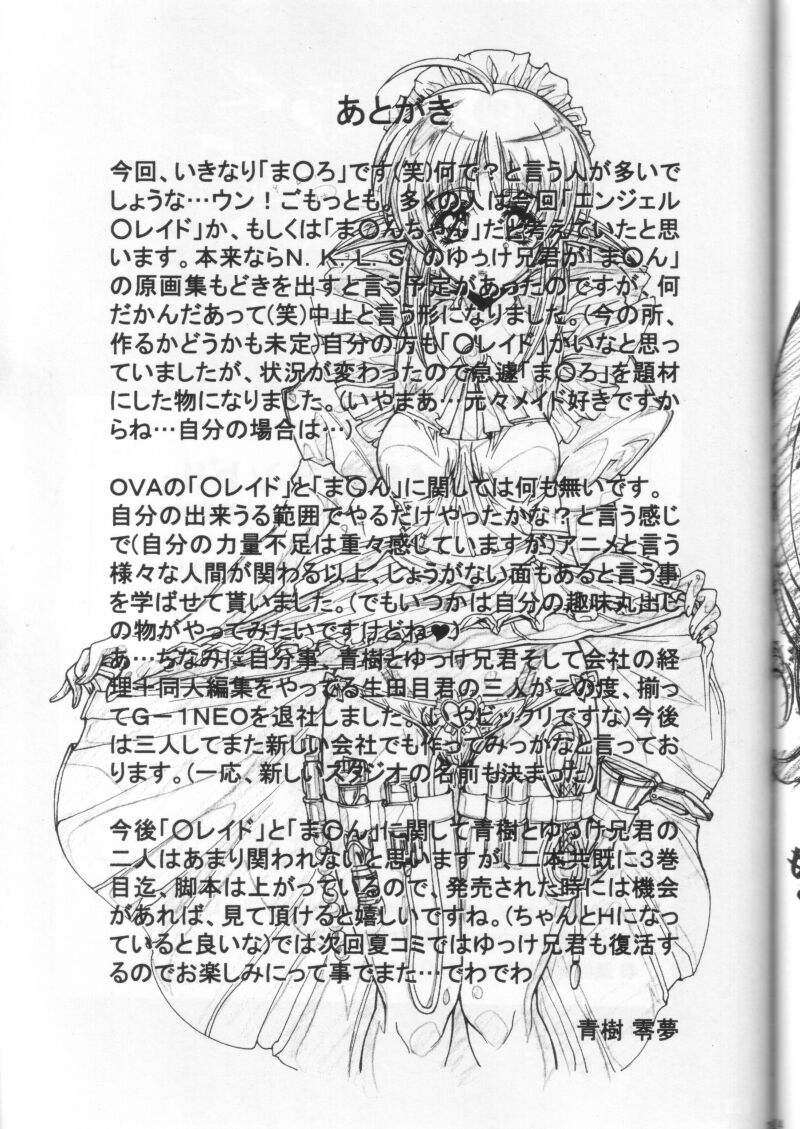 あとがき
今回、いきなり「ま〇ろ」です(笑)何で？と言う人が多いで
しょうな…ウン！ごもっとも。多くの人は今回「エンジェル
〇レイド」か、もしくは「ま〇んちゃん」だと考えていたと思
います。本来ならN．K．L．S．のゆっけ兄君が「ま〇ん」
の原画集もどきを出すと言う予定があったのですが、何
だかんだあって(笑)中止と言う形になりました。(今の所、
作るかどうかも未定)自分の方も「〇レイド」かいなと思っ
ていましたが、状況が変わったので急遽「ま〇ろ」を題材
にした物になりました。(いやまあ…元々メイド好きですか
らね…自分の場合は…)
OVAの「〇レイド」と「ま〇ん」に関しては何も無いです。
自分の出来うる範囲でやるだけやったかな？と言う感じ
で(自分の力量不足は重々感じていますが)アニメと言う
様々な人間が関わる以上、しょうがない面もあると言う事
を学ばせて貰いました。(でもいつかは自分の趣味丸出し
の物がやってみたいですけどね♥)
あ…ちなみに自分事、青樹とゆっけ兄君そして会社の経
理+同人編集をやってる生田目君の三人がこの度、揃っ
てG－1NEOを退社しました。(いやビックリですな)今後
は三人してまた新しい会社でも作ってみっかなと言ってお
ります。(一応、新しいスタジオの名前も決まった)
今後「〇レイド」と「ま〇ん」に関して青樹とゆっけ兄君の
二人はあまり関われないと思いますが、二本共既に3巻
目迄、脚本は上がっているので、発売された時には機会
があれば、見て頂けると嬉しいですね。(ちゃんとHになっ
ていると良いな)では次回夏コミではゆっけ兄君も復活す
るのでお楽しみにって事でまた…でわでわ
青樹 零夢